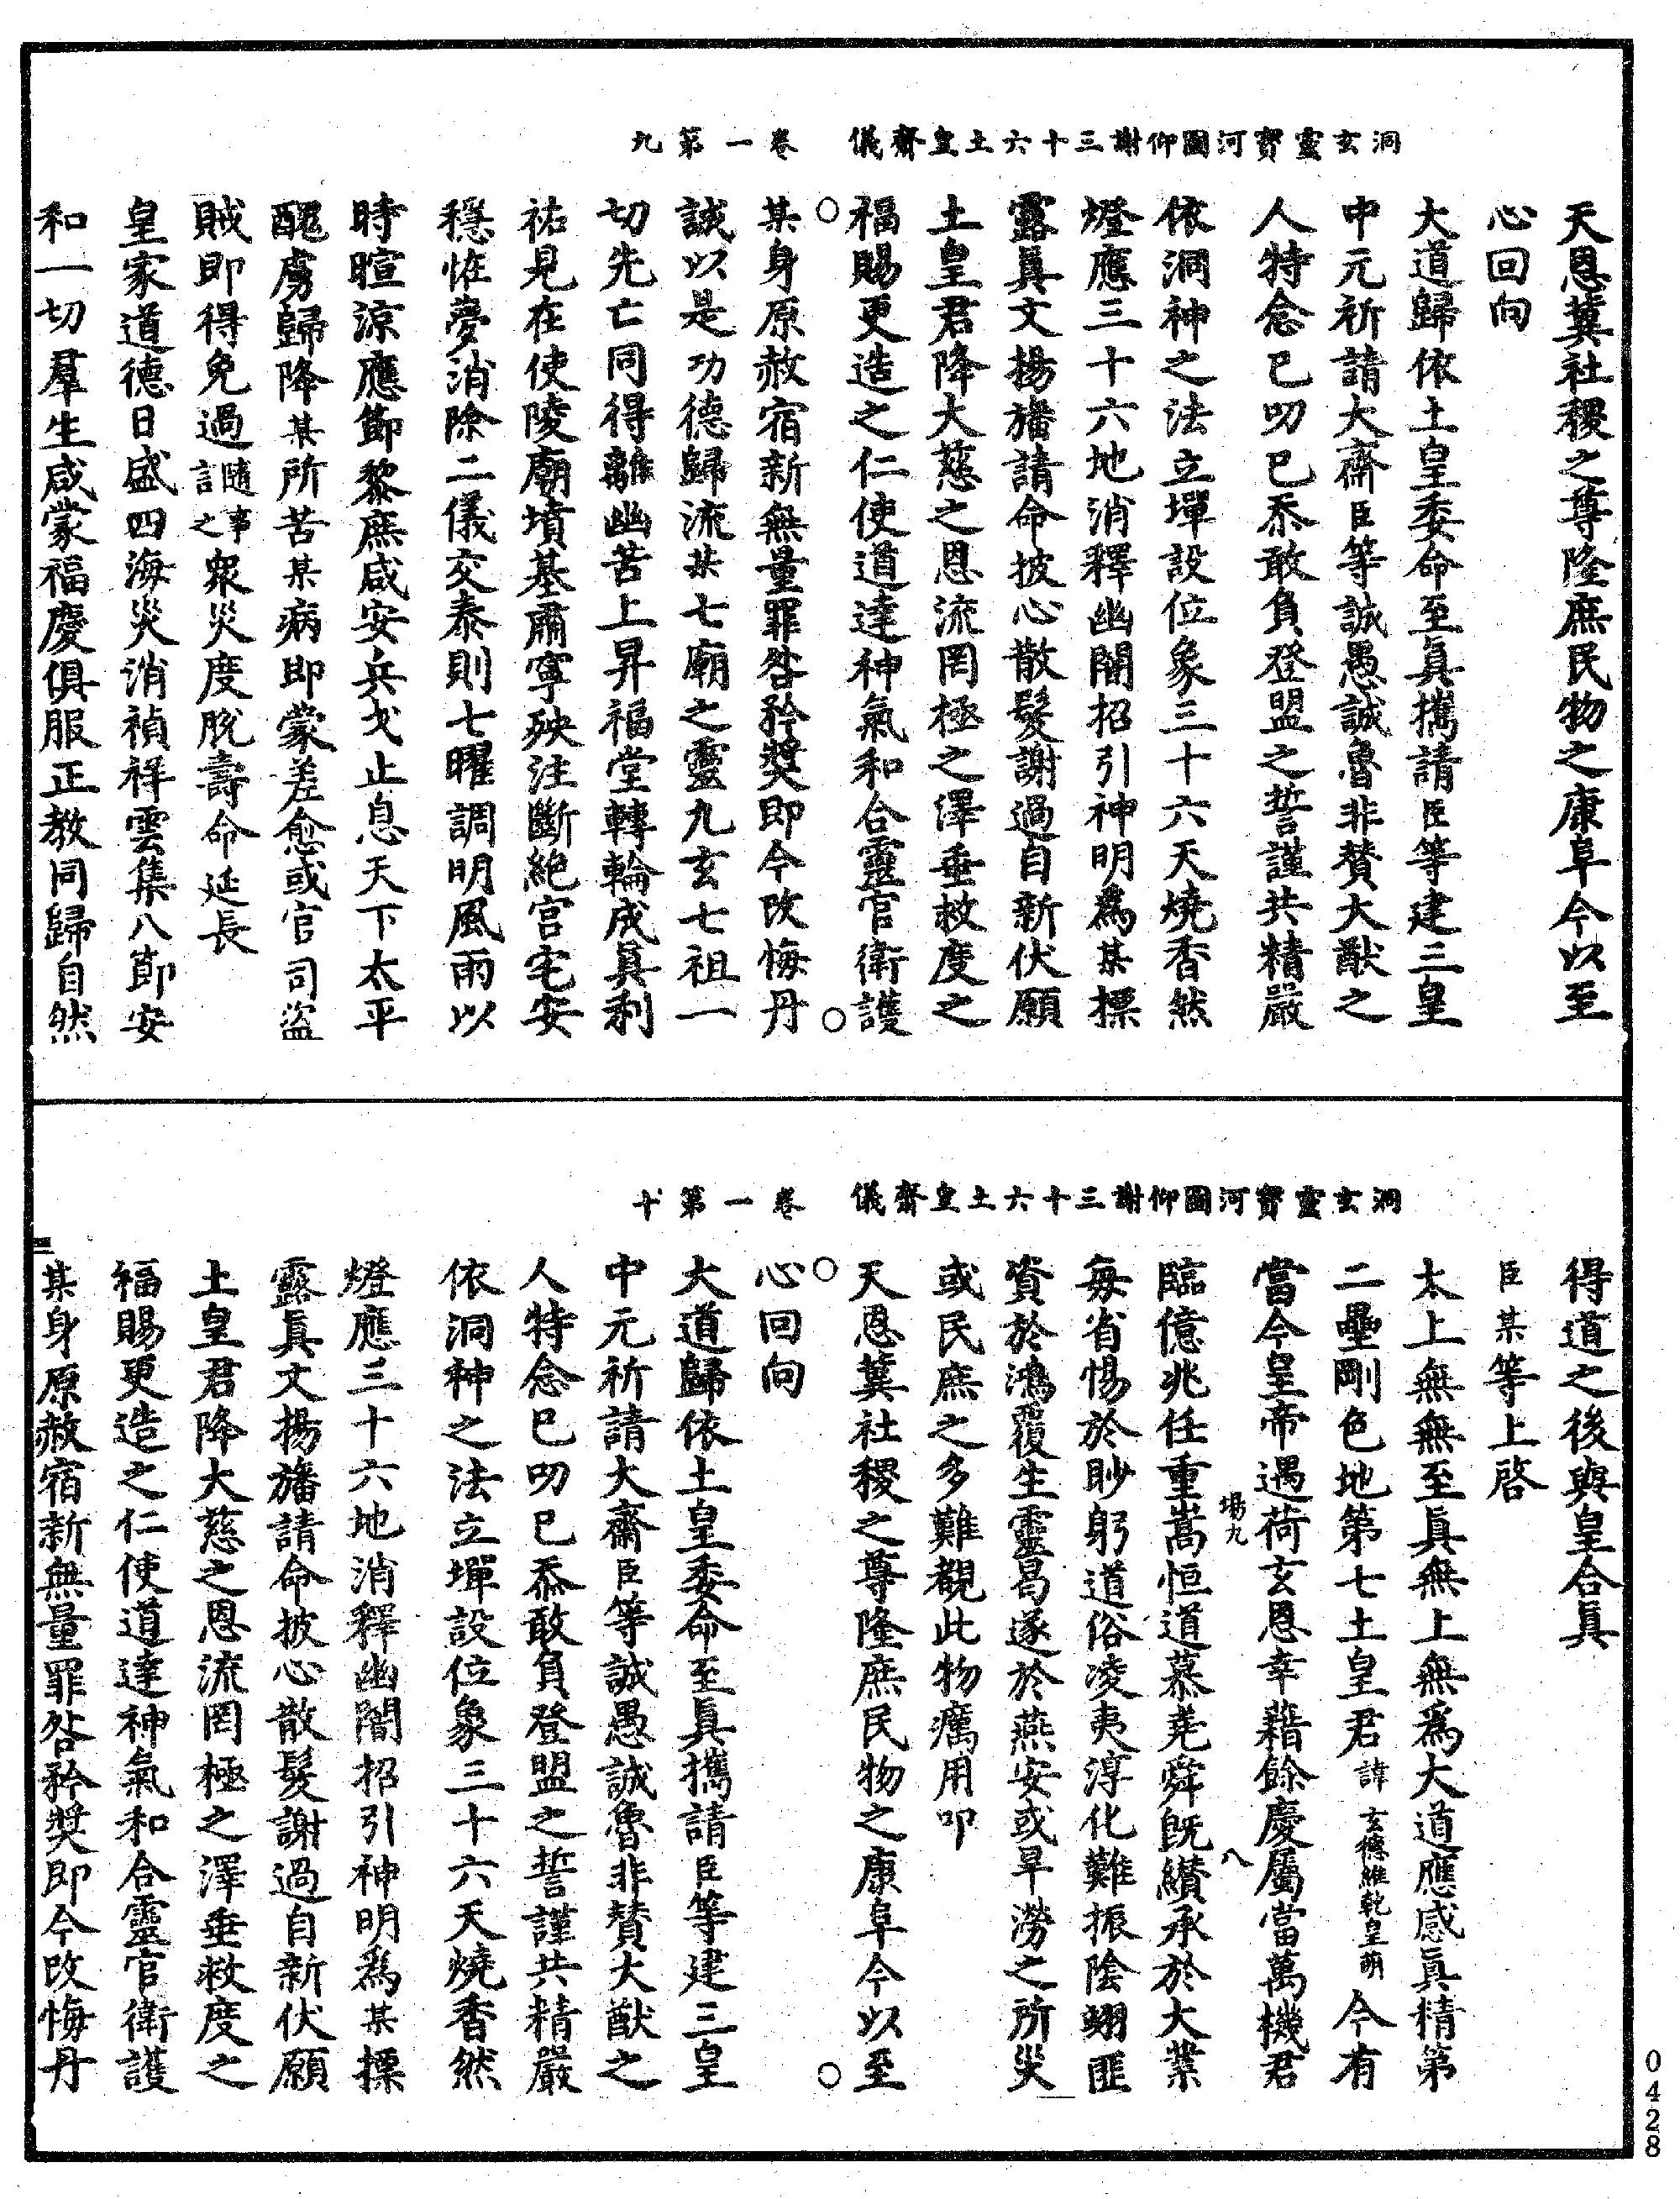 洞玄靈寶河圖仰謝三十六土皇齋儀　卷一第九
天恩冀社稷之尊隆庶民物之康阜今以至
心回向
大道歸依土皇委命至眞攜請臣等建三皇
中元祈請大齋臣等誠愚誠魯非贊大猷之
人特念已叨已忝敢負登盟之誓謹共精嚴
依洞神之法立墠設位象三十六天燒香然
燈應三十六地消釋幽闇招引神明爲某摽
露眞文揚旛請命披心散髮謝過自新伏願
土皇君降大慈之恩流罔極之澤垂救度之
福賜更造之仁使道達神氣和合靈官衛護
某身原赦宿新無量罪咎矜奬即今改悔丹
誠以是功德歸流某七廟之靈九玄七祖一
切先亡同得離幽苦上昇福堂轉輪成眞利
祐見在使陵廟墳墓肅寧殃注斷絶宫宅安
穩恠夢消除二儀交泰則七曜調明風雨以
時暄涼應節黎庶咸安兵戈止息天下太平
醜虜歸降某所苦某病即蒙差愈或官司盜
賊即得免過隨事言之衆災度脫壽命延長
皇家道德日盛四海災消禎祥雲集八節安
和一切羣生咸蒙福慶俱服正教同歸自然
洞玄靈寶河圖仰謝三十六土皇齋儀　卷一第十
得道之後與皇合眞
臣某等上啓
太上無無至眞無上無爲大道應感眞精第
二壘剛色地第七土皇君諱玄德維乾皇萌今有
當今皇帝遇荷玄恩幸藉餘慶屬當萬機君
場九　八
臨億兆任重嵩恒道慕堯舜既纘承於大業
每省惕於眇躬道俗凌夷淳化難振陰翊匪
資於鴻覆生靈曷遂於燕安或旱澇之所災
或民庶之多難覩此物癘用叩
天恩冀社稷之尊隆庶民物之康阜今以至
心回向
大道歸依土皇委命至眞攜請臣等建三皇
中元祈請大齋臣等誠愚誠魯非贊大猷之
人特念已叨已忝敢負登盟之誓謹共精嚴
依洞神之法立墠設位象三十六天燒香然
燈應三十六地消釋幽闇招引神明爲某摽
露眞文揚旛請命披心散髮謝過自新伏願
土皇君降大慈之恩流罔極之澤垂救度之
福賜更造之仁使道達神氣和合靈官衛護
某身原赦宿新無量罪咎矜奬即今改悔丹
三
0428